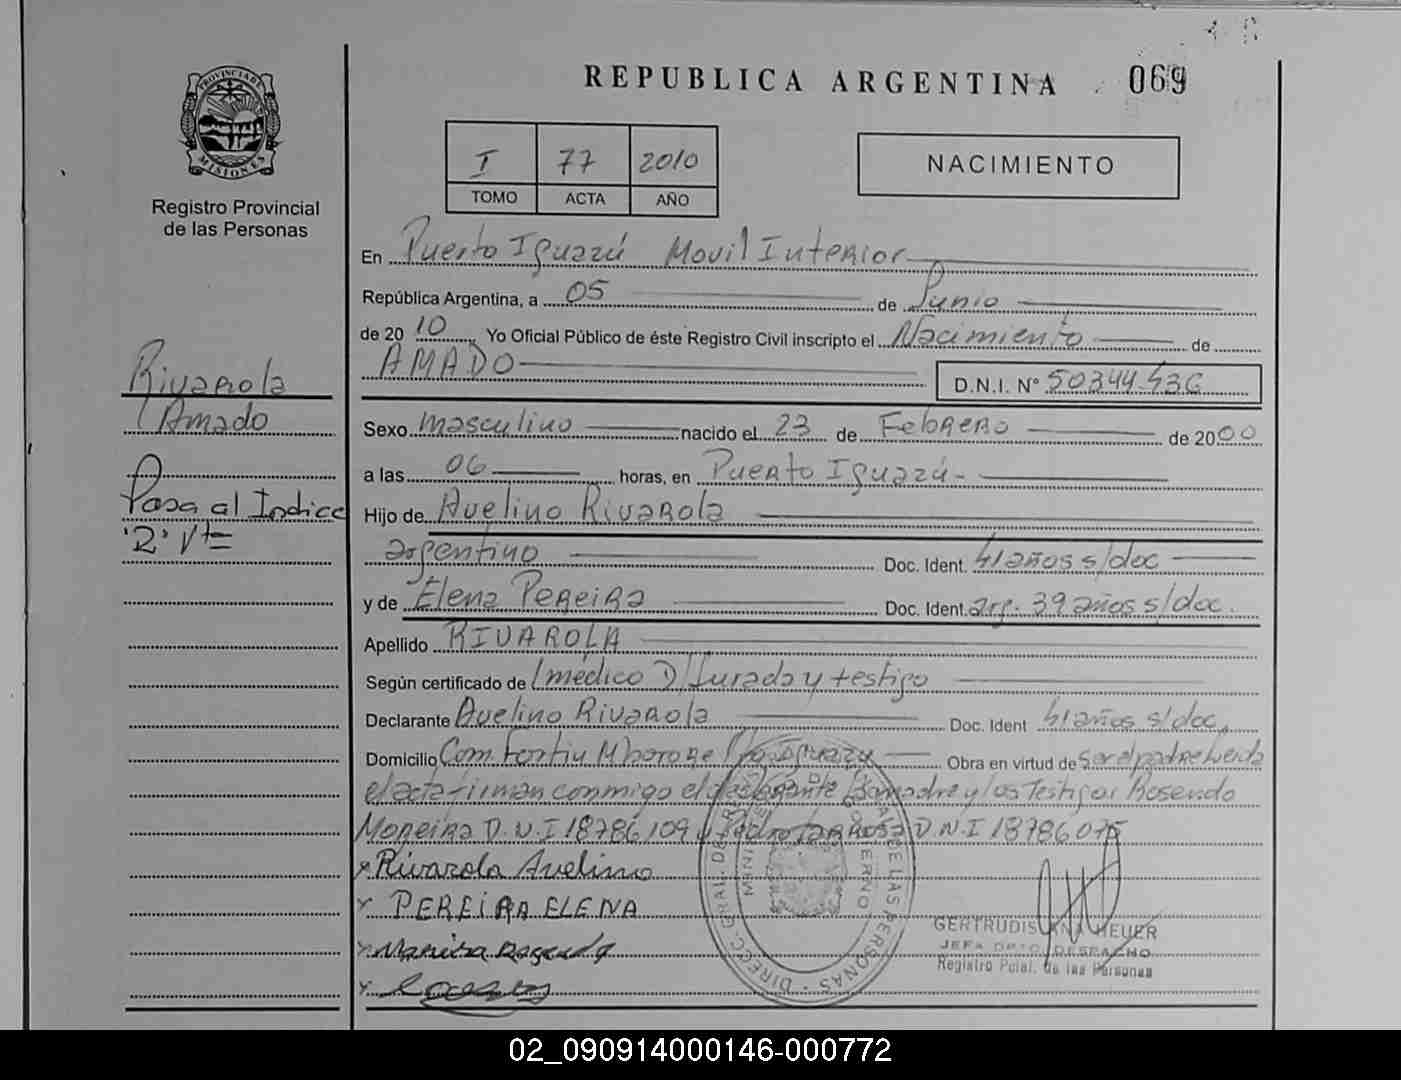 REPUBLICA ARGENTINA
069
PROVINCIA DE
MISIONES
Registro Provincial
de las Personas
I 77 2010
TOMO ACTA AÑO
NACIMIENTO
En Puerto Iguazú Movil Interior
República Argentina, a 05 de Junio
de 2010 Yo Oficial Público de éste Registro Civil inscripto el Nacimiento de
AMADO
D.N.I. N° 50344.436
Rivarola
Amado
Pasa al Indice
"R" Vta
Sexo masculino nacido el 23 de Febrero de 2000
a las 06 horas, en Puerto Iguazú-
Hijo de Avelino Rivarola
argentino Doc. Ident. 41 años s/doc
y de Elena Pereira Doc. Ident. arg. 39 años s/doc.
Apellido RIVAROLA
Según certificado de médico D/Jurada y testigo
Declarante Avelino Rivarola Doc. Ident 41 años s/doc
Domicilio Com. Fortin Mbororé Pto Iguazu Obra en virtud de ser el padre Leida
el acta firman conmigo el declarante la madre y los Testigos Rosendo
Moreira D.N.I 18786109 y Pedro D.N.I 18786075
x Rivarola Avelino
x PEREIRA ELENA
GERTRUDIS ANA HEUER
JEFA DPTO. DESPACHO
Registro Pcial. de las Personas
DIRECC. GRAL. DE LAS PERSONAS
02_090914000146-000772